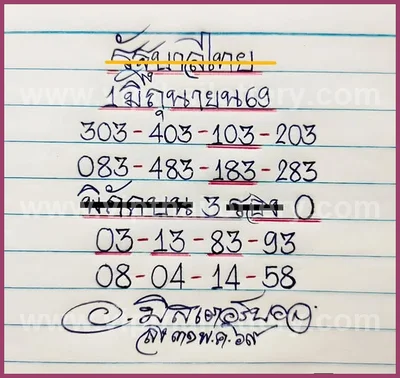 รัฐบาลไทย
1 มิถุนายน 69
303-403-103-203
083-483-183-283
พิกัดบน 3 ของ 0
03-13-83-93
08-04-14-58
อ. มิสเตอร์บอล
ลง ๓๑ พ.ค. ๖๙